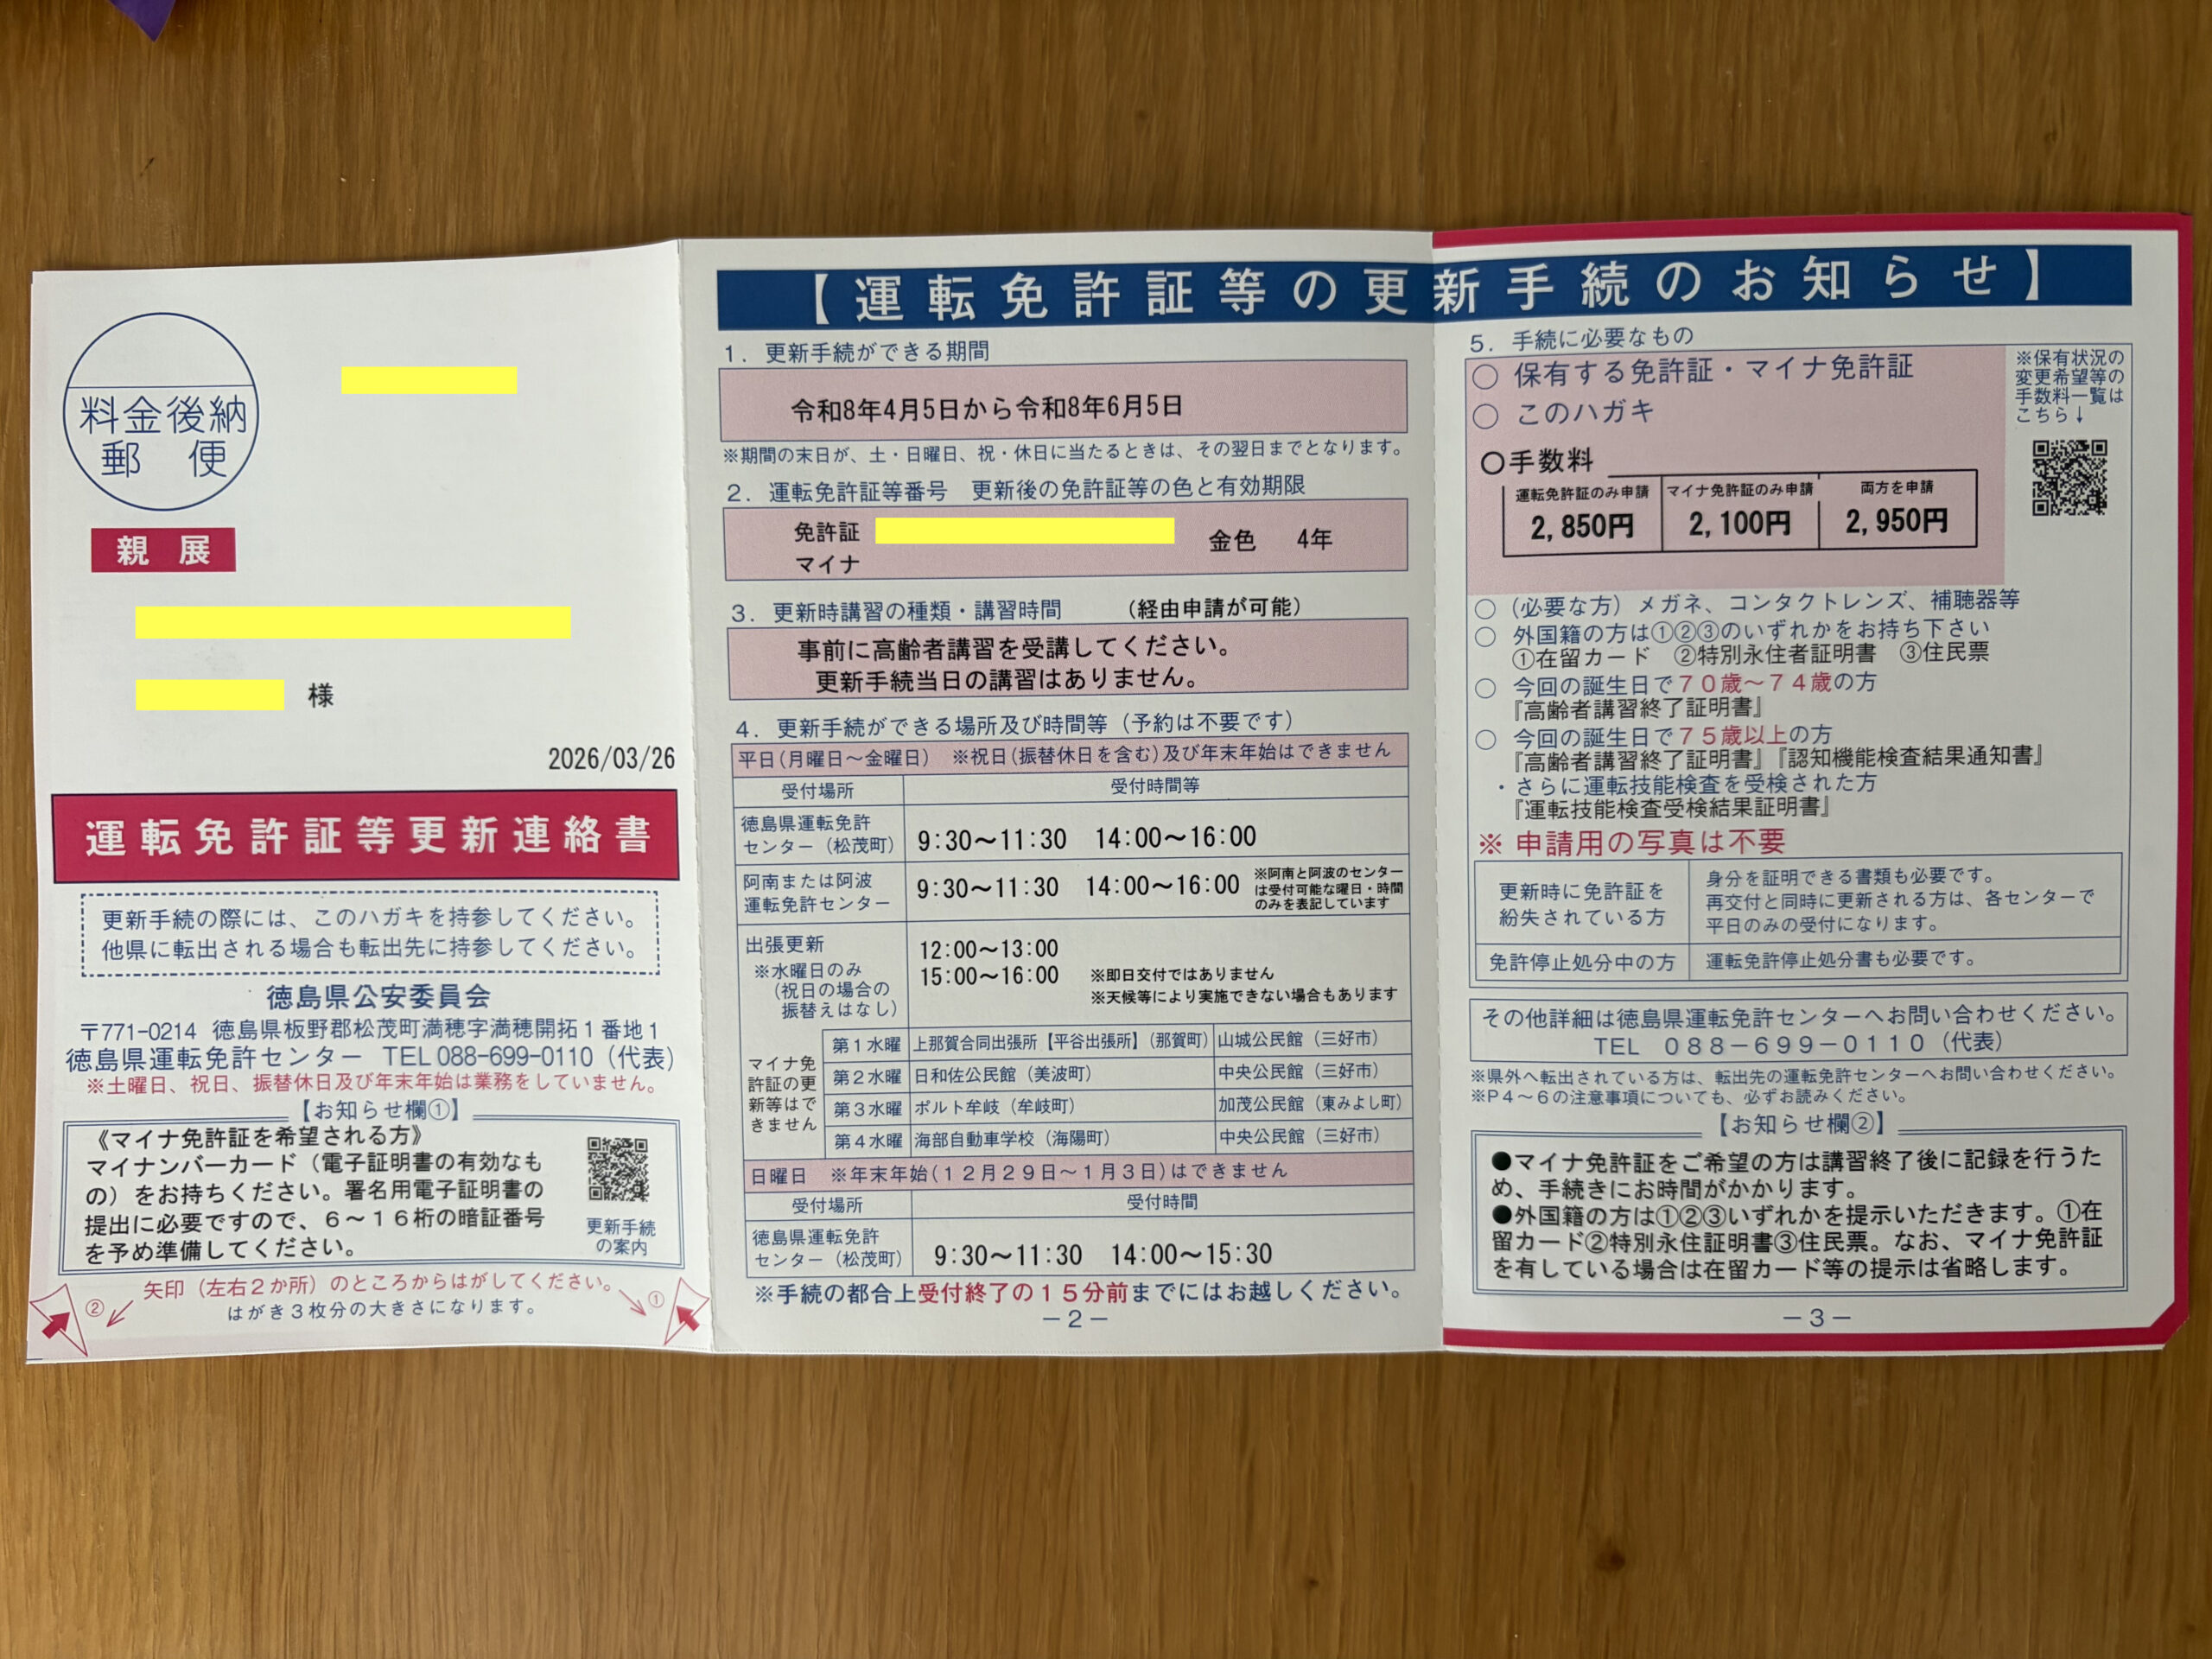 料金後納
郵便
親展
様
2026/03/26
運転免許証等更新連絡書
更新手続の際には、このハガキを持参してください。
他県に転出される場合も転出先に持参してください。
徳島県公安委員会
〒771-0214 徳島県板野郡松茂町満穂字満穂開拓1番地1
徳島県運転免許センター TEL 088-699-0110（代表）
※土曜日、祝日、振替休日及び年末年始は業務をしていません。
【お知らせ欄①】
《マイナ免許証を希望される方》
マイナンバーカード（電子証明書の有効なも
の）をお持ちください。署名用電子証明書の
提出に必要ですので、６～１６桁の暗証番号
を予め準備してください。
更新手続
の案内
矢印（左右２か所）のところからはがしてください。
はがき３枚分の大きさになります。
②
①
【運転免許証等の更新手続のお知らせ】
1．更新手続ができる期間
令和8年4月5日から令和8年6月5日
※期間の末日が、土・日曜日、祝・休日に当たるときは、その翌日までとなります。
2．運転免許証等番号 更新後の免許証等の色と有効期限
免許証 金色 4年
マイナ
3．更新時講習の種類・講習時間 （経由申請が可能）
事前に高齢者講習を受講してください。
更新手続当日の講習はありません。
4．更新手続ができる場所及び時間等（予約は不要です）
平日(月曜日～金曜日) ※祝日(振替休日を含む)及び年末年始はできません
受付場所 受付時間等
徳島県運転免許
センター（松茂町）
9:30～11:30 14:00～16:00
阿南または阿波
運転免許センター
9:30～11:30 14:00～16:00
※阿南と阿波のセンター
は受付可能な曜日・時間
のみを表記しています
出張更新
※水曜日のみ
（祝日の場合の
振替えはなし）
12:00～13:00
15:00～16:00
※即日交付ではありません
※天候等により実施できない場合もあります
マイナ免
許証の更
新等はで
きません
第１水曜 上那賀合同出張所【平谷出張所】（那賀町） 山城公民館（三好市）
第２水曜 日和佐公民館（美波町） 中央公民館（三好市）
第３水曜 ポルト牟岐（牟岐町） 加茂公民館（東みよし町）
第４水曜 海部自動車学校（海陽町） 中央公民館（三好市）
日曜日 ※年末年始(１２月２９日～１月３日)はできません
受付場所 受付時間
徳島県運転免許
センター（松茂町）
9:30～11:30 14:00～15:30
※手続の都合上受付終了の１５分前までにはお越しください。
－2－
5．手続に必要なもの
○ 保有する免許証・マイナ免許証
○ このハガキ
○手数料
運転免許証のみ申請 マイナ免許証のみ申請 両方を申請
2,850円 2,100円 2,950円
※保有状況の
変更希望等の
手数料一覧は
こちら↓
○（必要な方）メガネ、コンタクトレンズ、補聴器等
○ 外国籍の方は①②③のいずれかをお持ち下さい
①在留カード ②特別永住者証明書 ③住民票
○ 今回の誕生日で７０歳～７４歳の方
『高齢者講習終了証明書』
○ 今回の誕生日で７５歳以上の方
『高齢者講習終了証明書』『認知機能検査結果通知書』
・さらに運転技能検査を受検された方
『運転技能検査受検結果証明書』
※ 申請用の写真は不要
更新時に免許証を
紛失されている方
身分を証明できる書類も必要です。
再交付と同時に更新される方は、各センターで
平日のみの受付になります。
免許停止処分中の方 運転免許停止処分書も必要です。
その他詳細は徳島県運転免許センターへお問い合わせください。
TEL ０８８－６９９－０１１０（代表）
※県外へ転出されている方は、転出先の運転免許センターへお問い合わせください。
※P４～６の注意事項についても、必ずお読みください。
【お知らせ欄②】
●マイナ免許証をご希望の方は講習終了後に記録を行うた
め、手続きにお時間がかかります。
●外国籍の方は①②③いずれかを提示いただきます。①在
留カード②特別永住証明書③住民票。なお、マイナ免許証
を有している場合は在留カード等の提示は省略します。
－3－